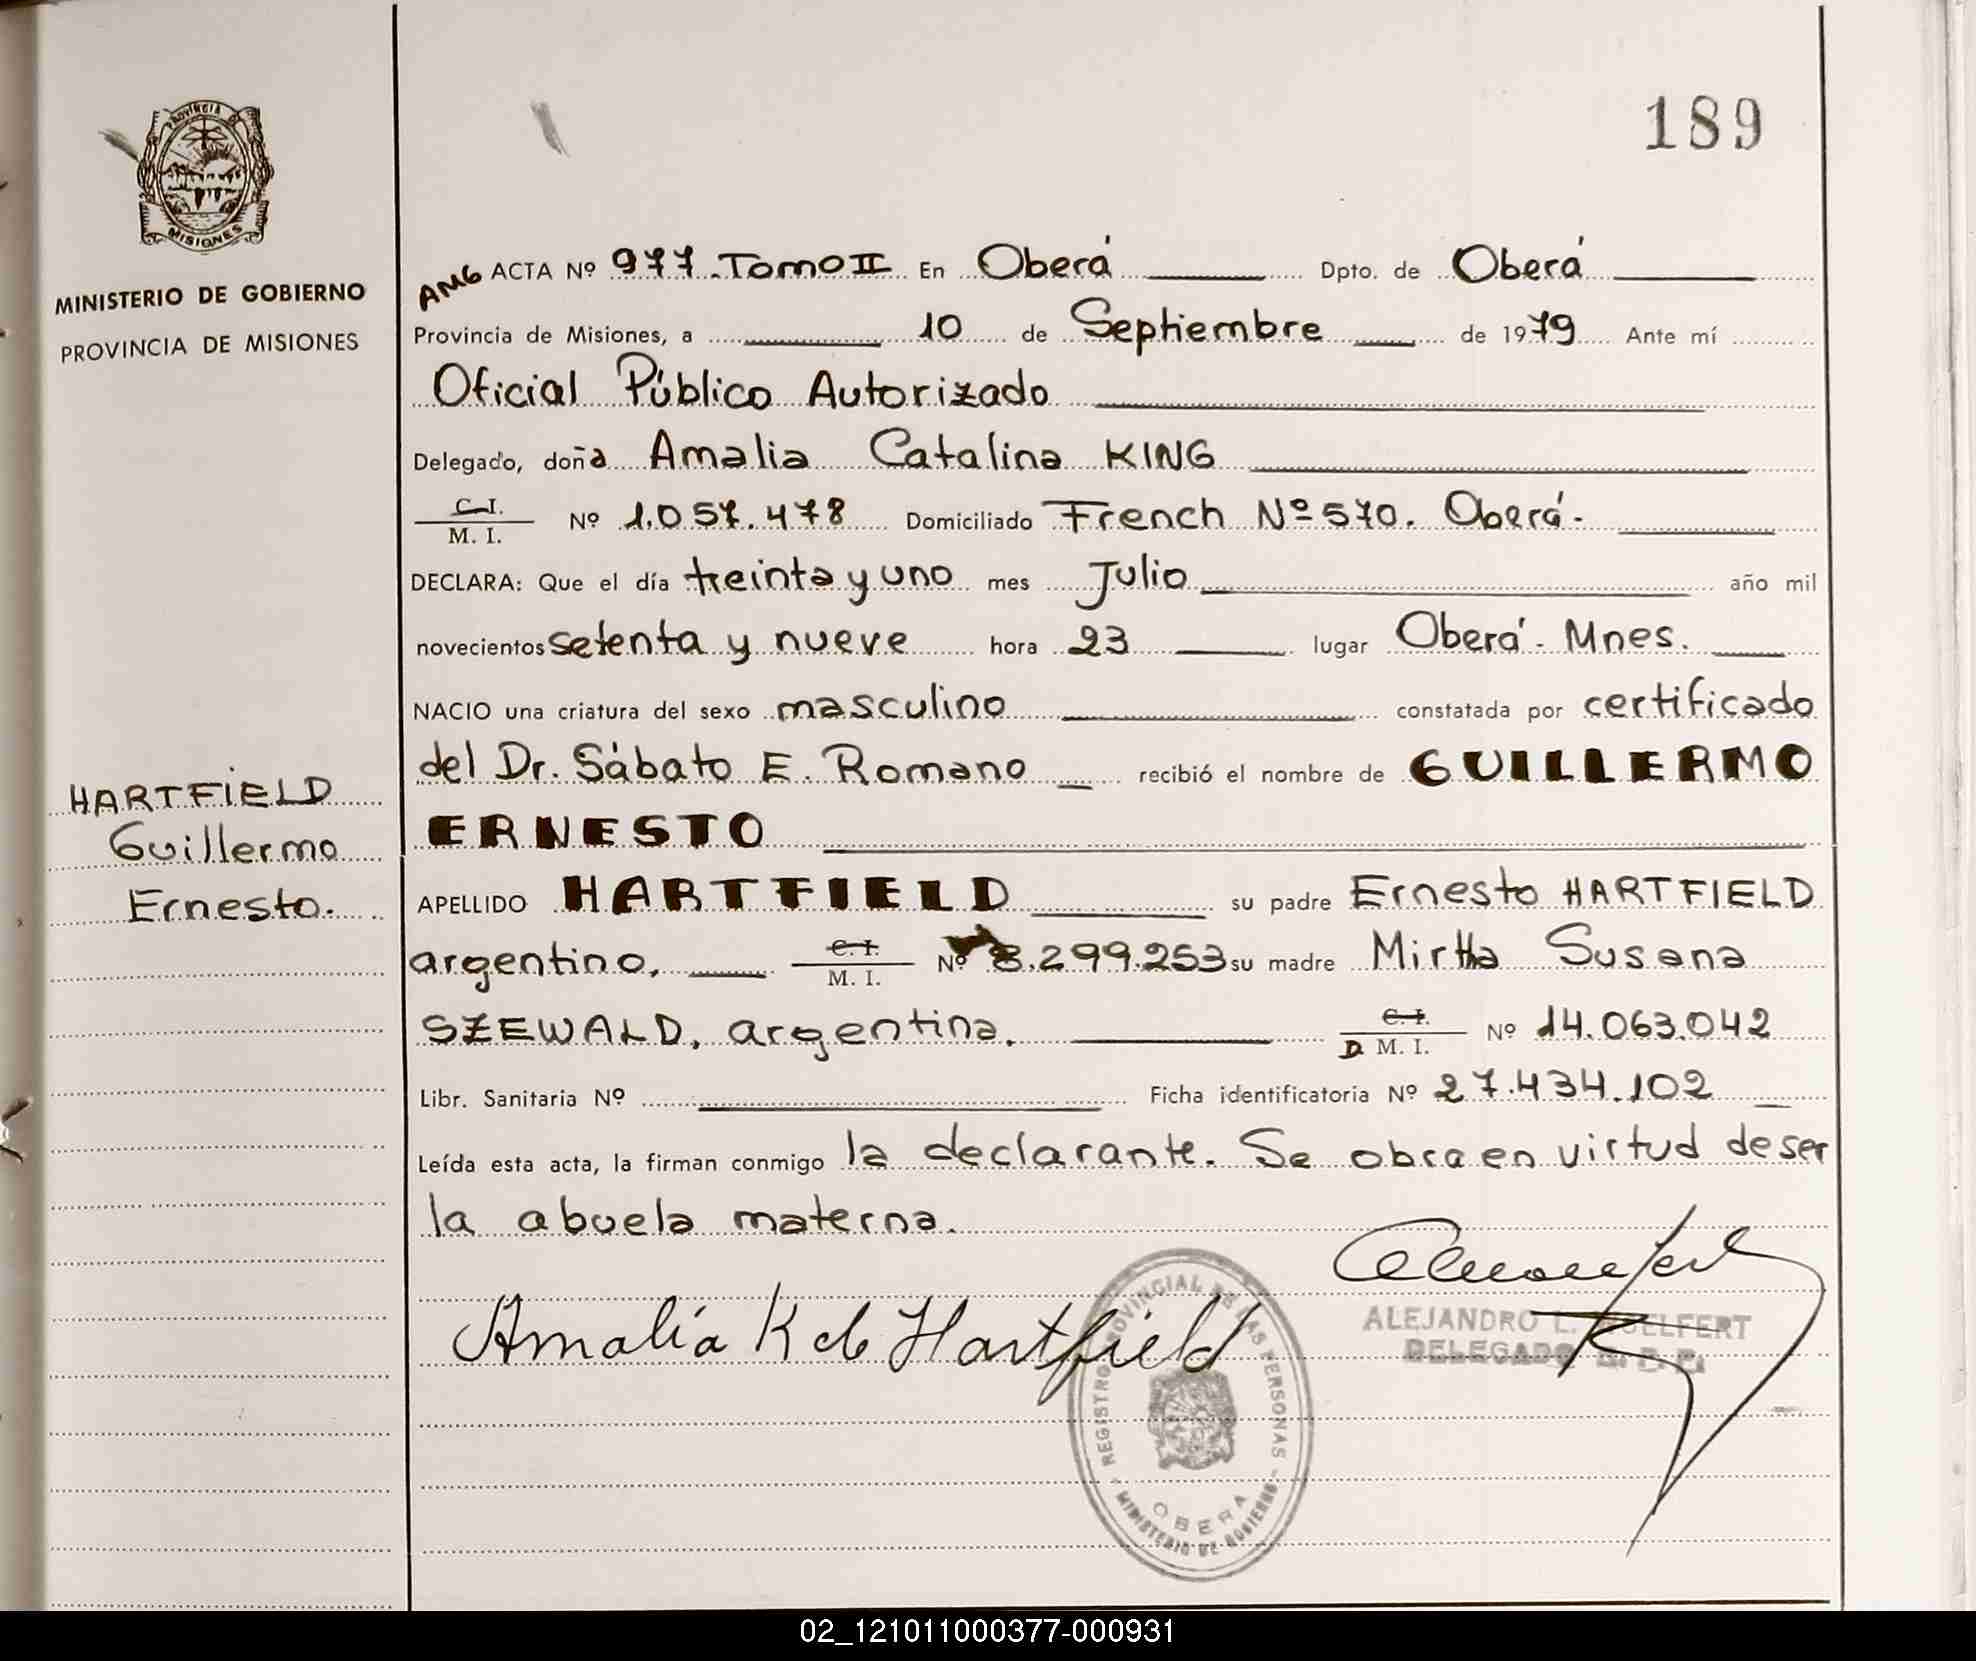 189
PROVINCIA DE
MISIONES
MINISTERIO DE GOBIERNO
PROVINCIA DE MISIONES
HARTFIELD
Guillermo
Ernesto.
AMG ACTA Nº 977. Tomo II En Oberá Dpto. de Oberá
Provincia de Misiones, a 10 de Septiembre de 1979 Ante mí
Oficial Público Autorizado
Delegado, doña Amalia Catalina KING
C.I.
M. I. Nº 1.057.478 Domiciliado French Nº 570. Oberá.-
DECLARA: Que el día treinta y uno mes Julio año mil
novecientos setenta y nueve hora 23 lugar Oberá.- Mnes.
NACIO una criatura del sexo masculino constatada por certificado
del Dr. Sábato E. Romano recibió el nombre de GUILLERMO
ERNESTO
APELLIDO HARTFIELD su padre Ernesto HARTFIELD
argentino, C. I.
M. I. Nº 8.299.253 su madre Mirtha Susana
SZEWALD, argentina. C. I.
D M. I. Nº 14.063.042
Libr. Sanitaria Nº Ficha identificatoria Nº 27.434.102
Leída esta acta, la firman conmigo la declarante. Se obra en virtud de ser
la abuela materna.
Amalia K de Hartfield
REGISTRO PROVINCIAL DE LAS PERSONAS
OBERA
MINISTERIO DE GOBIERNO
ALEJANDRO L. WOELFERT
DELEGADO
02_121011000377-000931